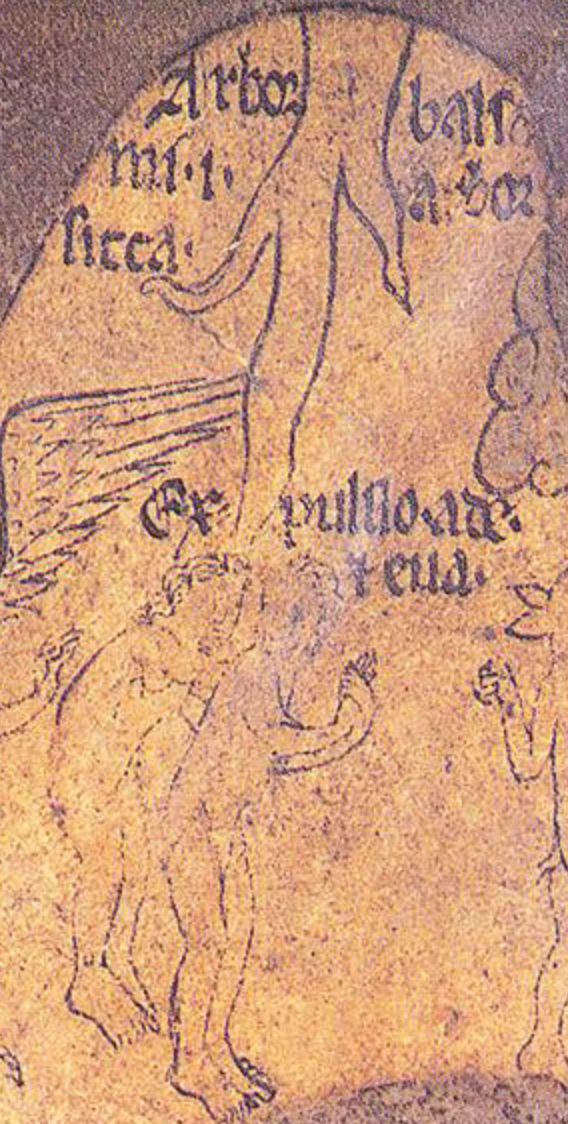 Arbor balsa
mi·i· arbor
sicca·
Expulsio·ade·
⁊ eua·